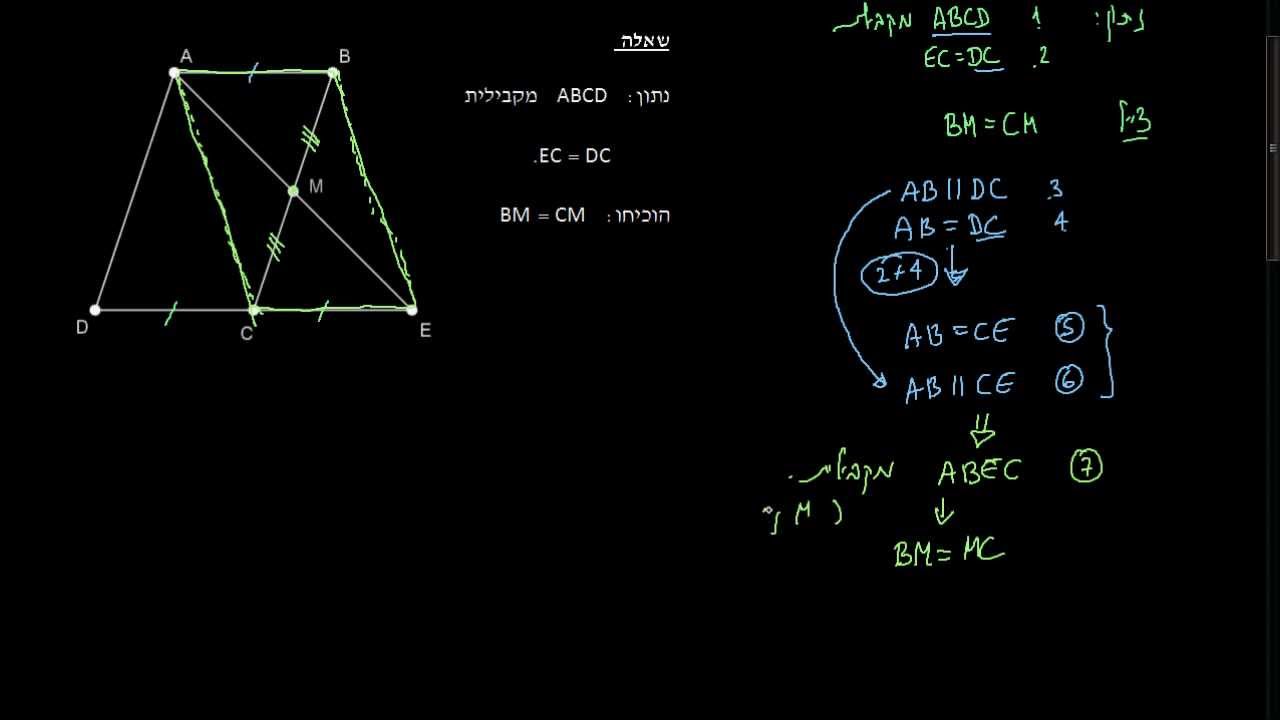 שאלה
נתון: ABCD מקבילית
EC = DC.
הוכיחו: BM = CM
A
B
M
D
C
E
נתון: 1 ABCD מקבילית
2. EC=DC
צ"ל BM = CM
3. AB || DC
4 AB = DC
2+4
AB = CE 5
AB || CE 6
7 ABEC מקבילית.
( M
BM = MC